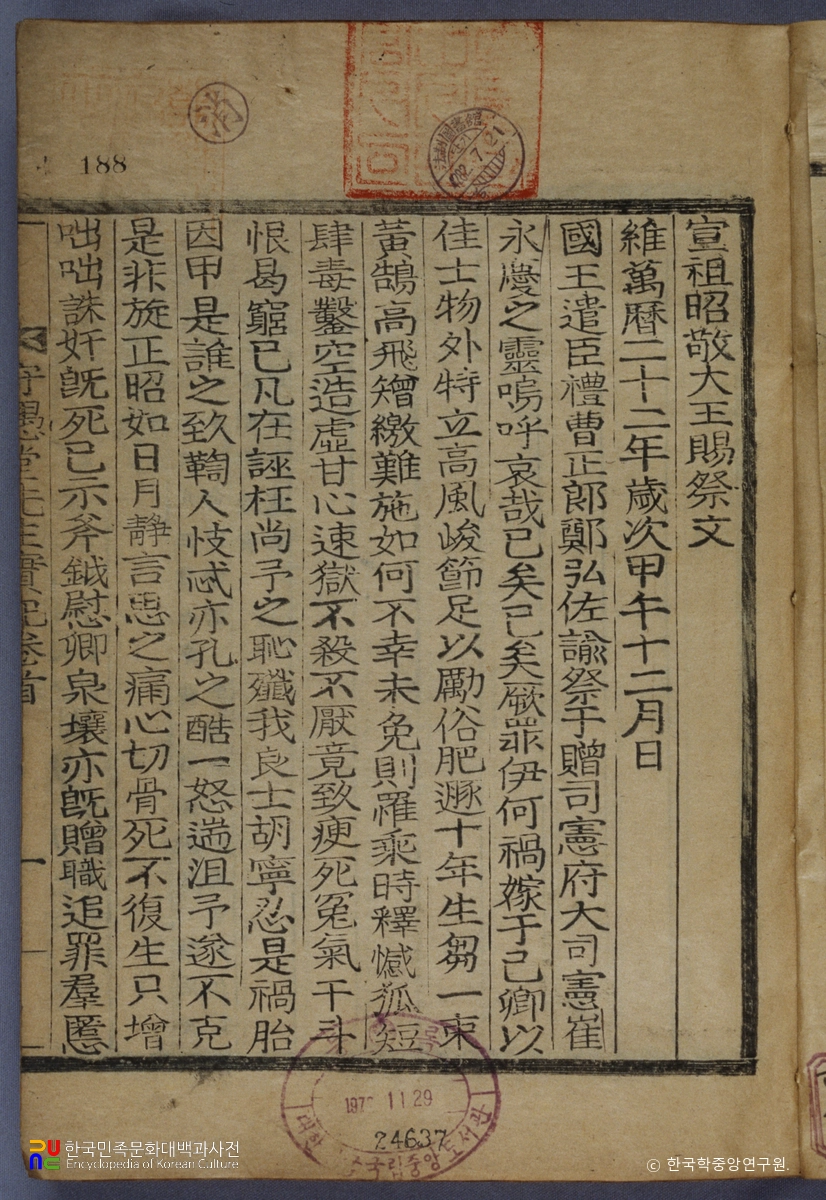 宣祖昭敬大王賜祭文
維萬曆二十二年歲次甲午十二月日
國王遣臣禮曹正郎鄭弘佐諭祭于贈司憲府大司憲崔
永慶之靈嗚呼哀哉已矣已矣厥罪伊何禍嫁于己卿以
佳士物外特立高風峻節足以勵俗肥遯十年生芻一束
黃鵠高飛矰繳難施如何不幸未免則罹乘時釋憾狐短
肆毒鑿空造虛甘心速獄不殺不厭竟致瘐死冤氣干斗
恨曷窮已凡在誣枉尚予之恥殲我良士胡寧忍是禍胎
因甲是誰之致鞫人忮忒亦孔之酷一怒遄沮予遂不克
是非旋正昭如日月靜言思之痛心切骨死不復生只增
咄咄誅奸旣死已示斧鉞慰卿泉壤亦旣贈職追罪羣慝
守愚堂先生實紀卷首
一
188
7.21
1972 11 29
24637
한국민족문화대백과사전
Encyclopedia of Korean Culture
© 한국학중앙연구원.